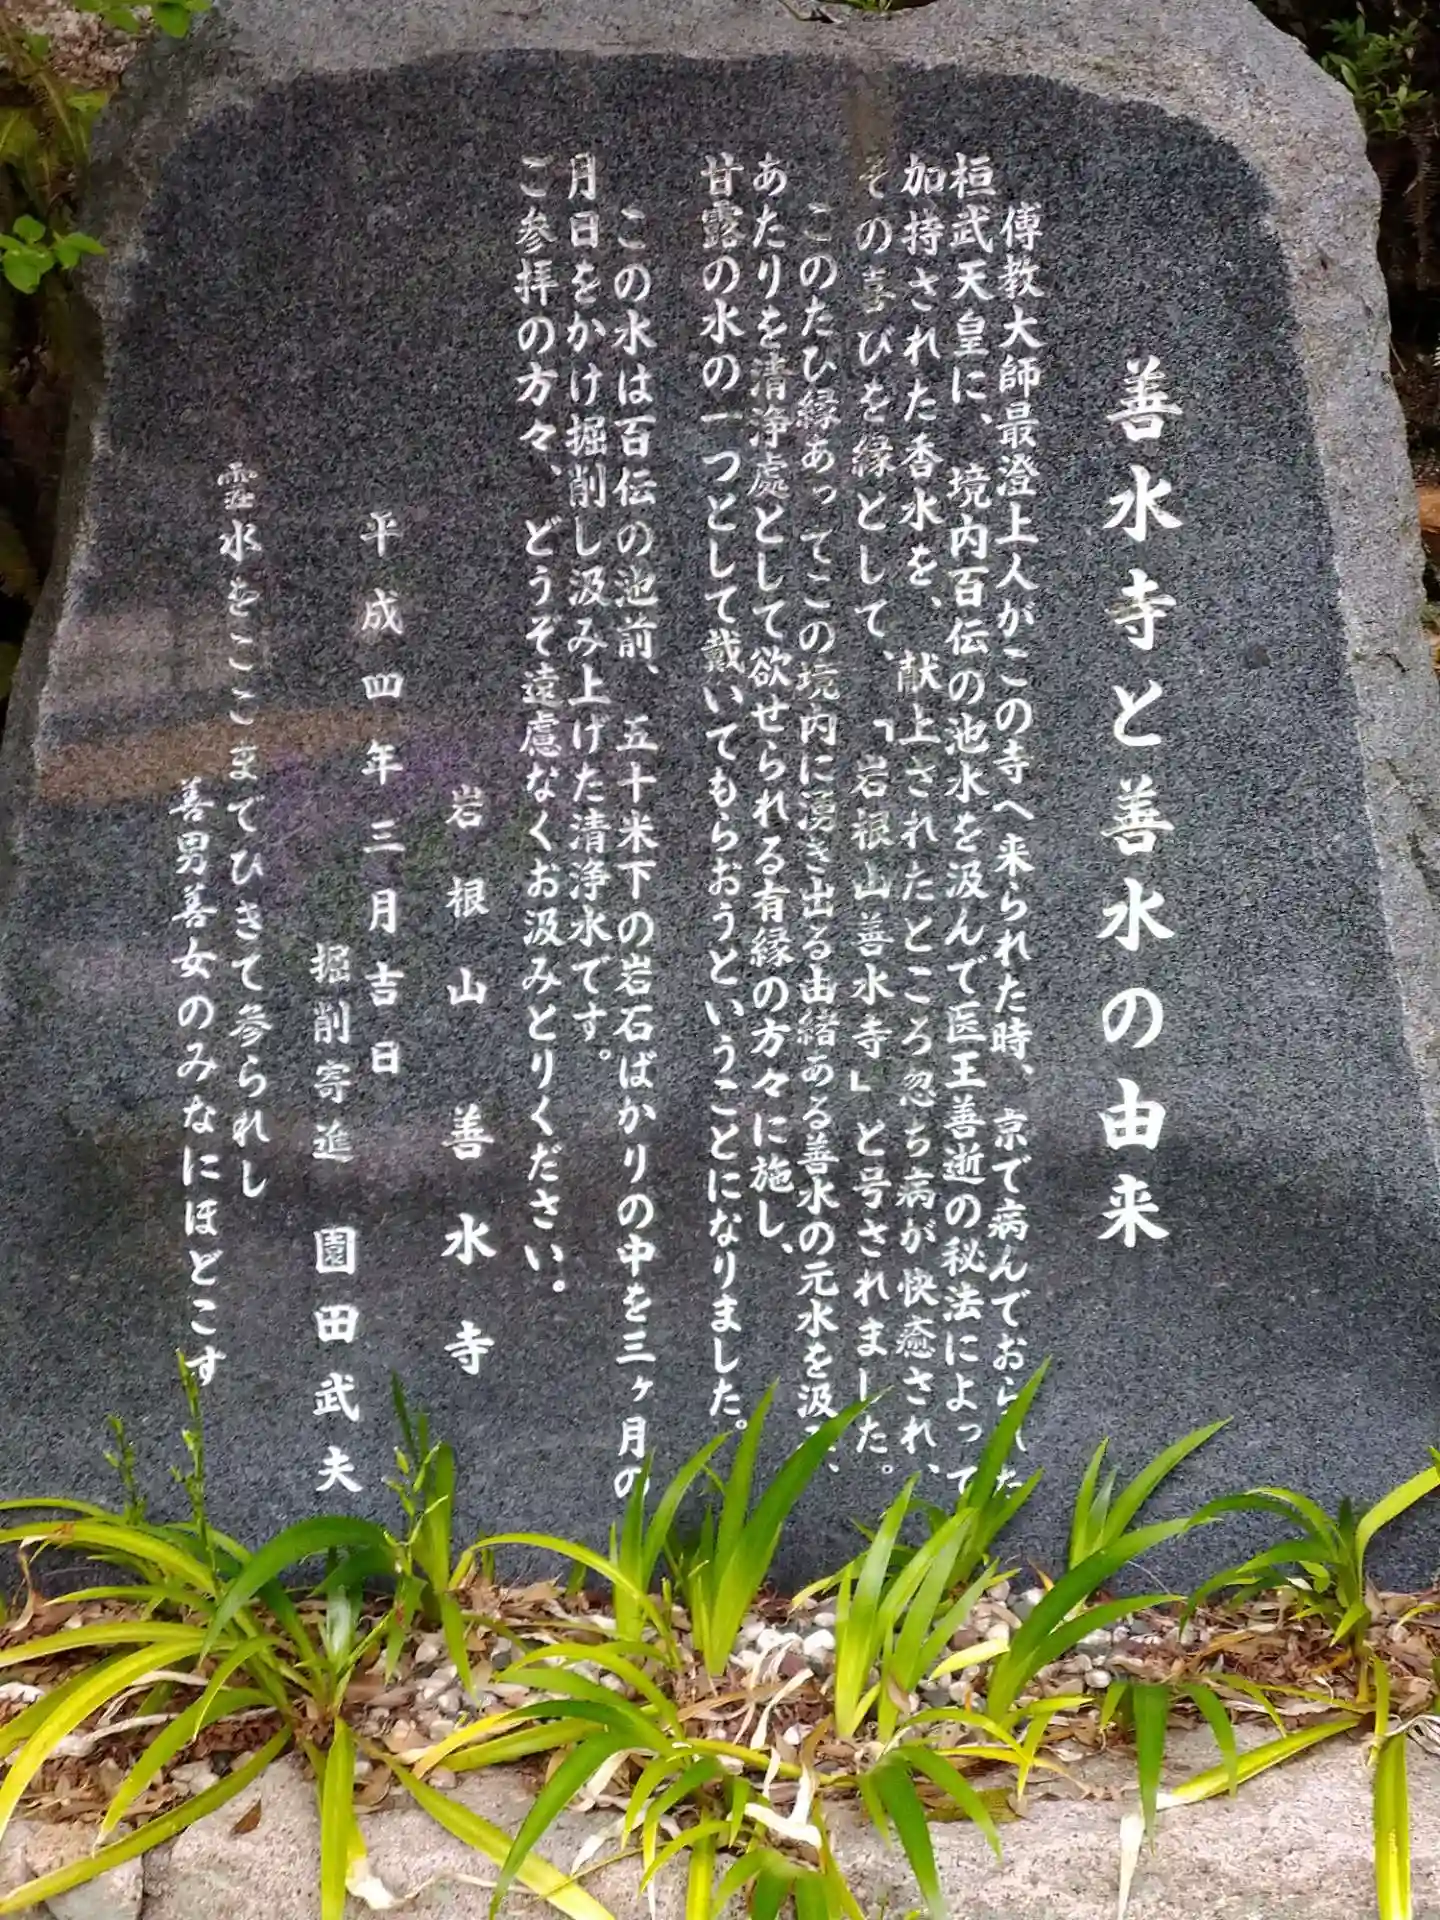 善水寺と善水の由来
傳教大師最澄上人がこの寺へ来られた時、京で病んでおられた
桓武天皇に、境内百伝の池水を汲んで医王善逝の秘法によって
加持された香水を、献上されたところ忽ち病が快癒され、
その喜びを縁として、「岩根山善水寺」と号されました。
このたひ縁あってこの境内に湧き出る由緒ある善水の元水を汲み、
あたりを清浄處として欲せられる有縁の方々に施し、
甘露の水の一つとして戴いてもらおうということになりました。
この水は百伝の池前、五十米下の岩石ばかりの中を三ヶ月の
月日をかけ掘削し汲み上げた清浄水です。
ご参拝の方々、どうぞ遠慮なくお汲みとりください。
岩根山善水寺
平成四年三月吉日
掘削寄進 園田武夫
霊水をここまでひきて参られし
善男善女のみなにほどこす